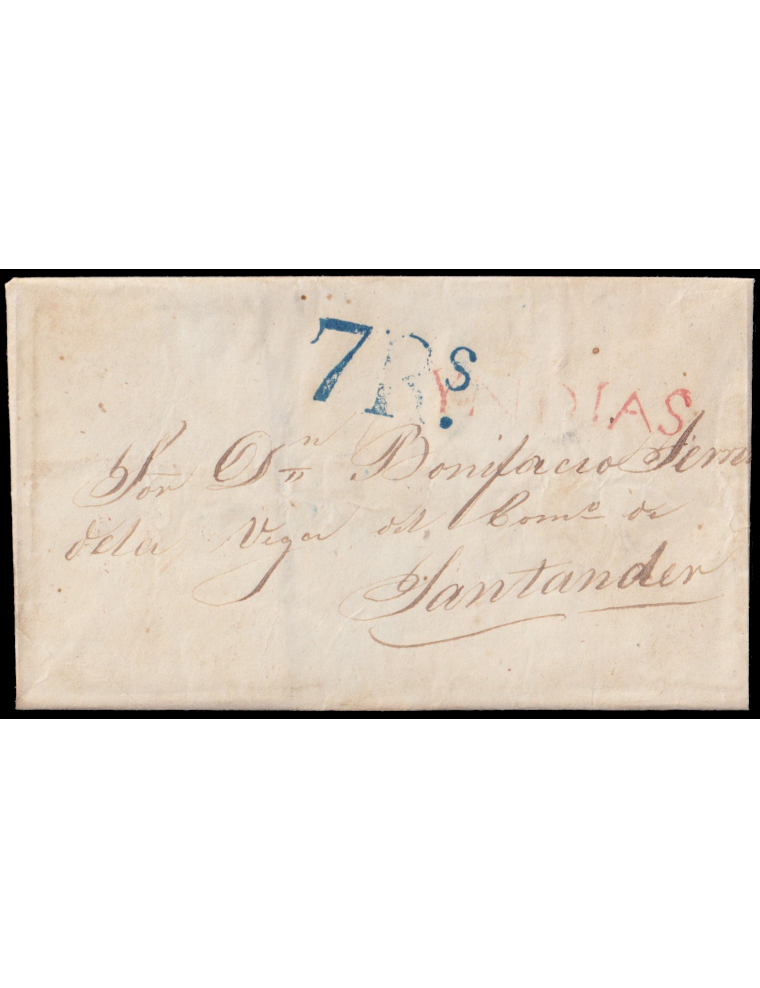 7 Rs.
YNDIAS
Sor Dn Bonifacio
dela Vega del Como de
Santander